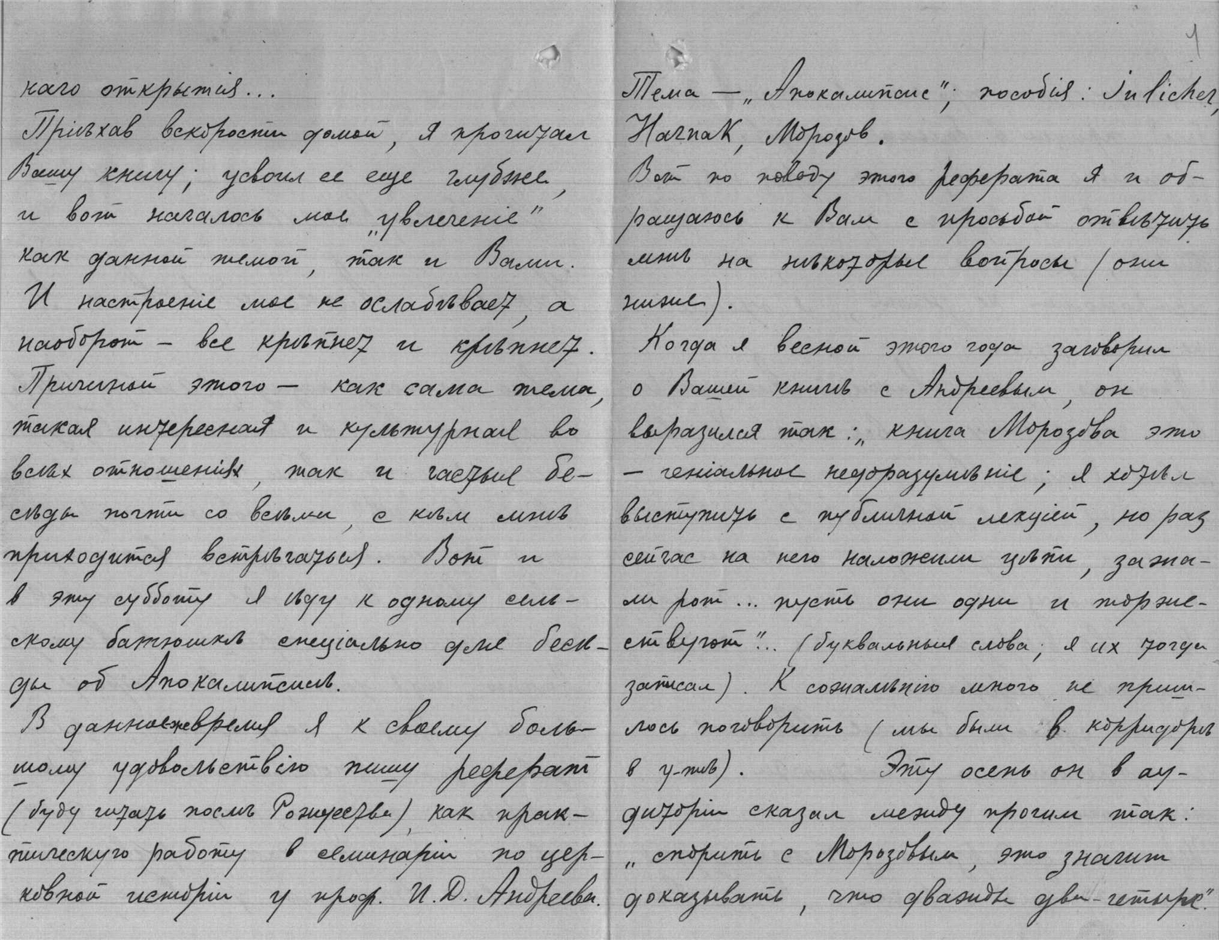 наго открытія...
Пріѣхав вскорости домой, я прочитал
Вашу книгу; усвоил ее еще глубже,
и вот началось мое „увлеченіе"
как данной темой, так и Вами.
И настроеніе мое не ослабѣвает, а
наоборот — все крѣпнет и крѣпнет.
Причиной этого — как сама тема,
такая интересная и культурная во
всѣх отношеніях, так и частые бе-
сѣды почти со всѣми, с кѣм мнѣ
приходится встрѣчаться. Вот и
в эту субботу я ѣду к одному сель-
скому батюшкѣ спеціально для бесѣ-
ды об Апокалипсисѣ.
В данное же время я к своему боль-
шому удовольствію пишу реферат
(буду читать послѣ Рождества), как прак-
тическую работу в семинаріи по цер-
ковной исторіи у проф. И. Д. Андреева.
1
Тема — „Апокалипсис"; пособія: Julicher,
Harnak, Морозов.
Вот по поводу этого реферата я и об-
ращаюсь к Вам с просьбой отвѣтить
мнѣ на нѣкоторые вопросы (они
ниже).
Когда я весной этого года заговорил
о Вашей книгѣ с Андреевым, он
выразился так: „книга Морозова это
— геніальное недоразумѣніе; я хотѣл
выступить с публичной лекціей, но раз
сейчас на него наложили цѣпи, зажа-
ли рот... пусть они одни и торже-
ствуют"... (буквальныя слова; я их тогда
записал). К сожалѣнію много не приш-
лось поговорить (мы были в корридорѣ
в у-тѣ). Эту осень он в ау-
диторіи сказал между прочим так:
„спорить с Морозовым, это значит
доказывать, что дважды два-четыре".